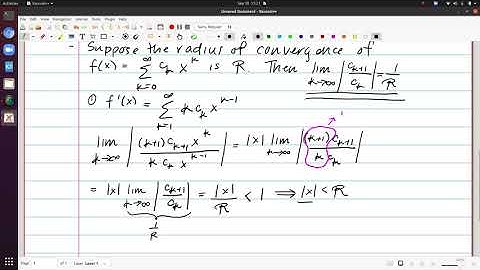 - Suppose the radius of convergence of
f(x) = ∑_{k=0}^{∞} c_k x^k is R. Then lim_{k→∞} |c_{k+1}/c_k| = 1/R
① f'(x) = ∑_{k=1}^{∞} k c_k x^{k-1}
lim_{k→∞} |(k+1) c_{k+1} x^k / k c_k x^{k-1}| = |x| lim_{k→∞} |(k+1) c_{k+1} / k c_k| → 1
= |x| lim_{k→∞} |c_{k+1}/c_k| = |x|/R < 1 ⟹ |x| < R
1/R